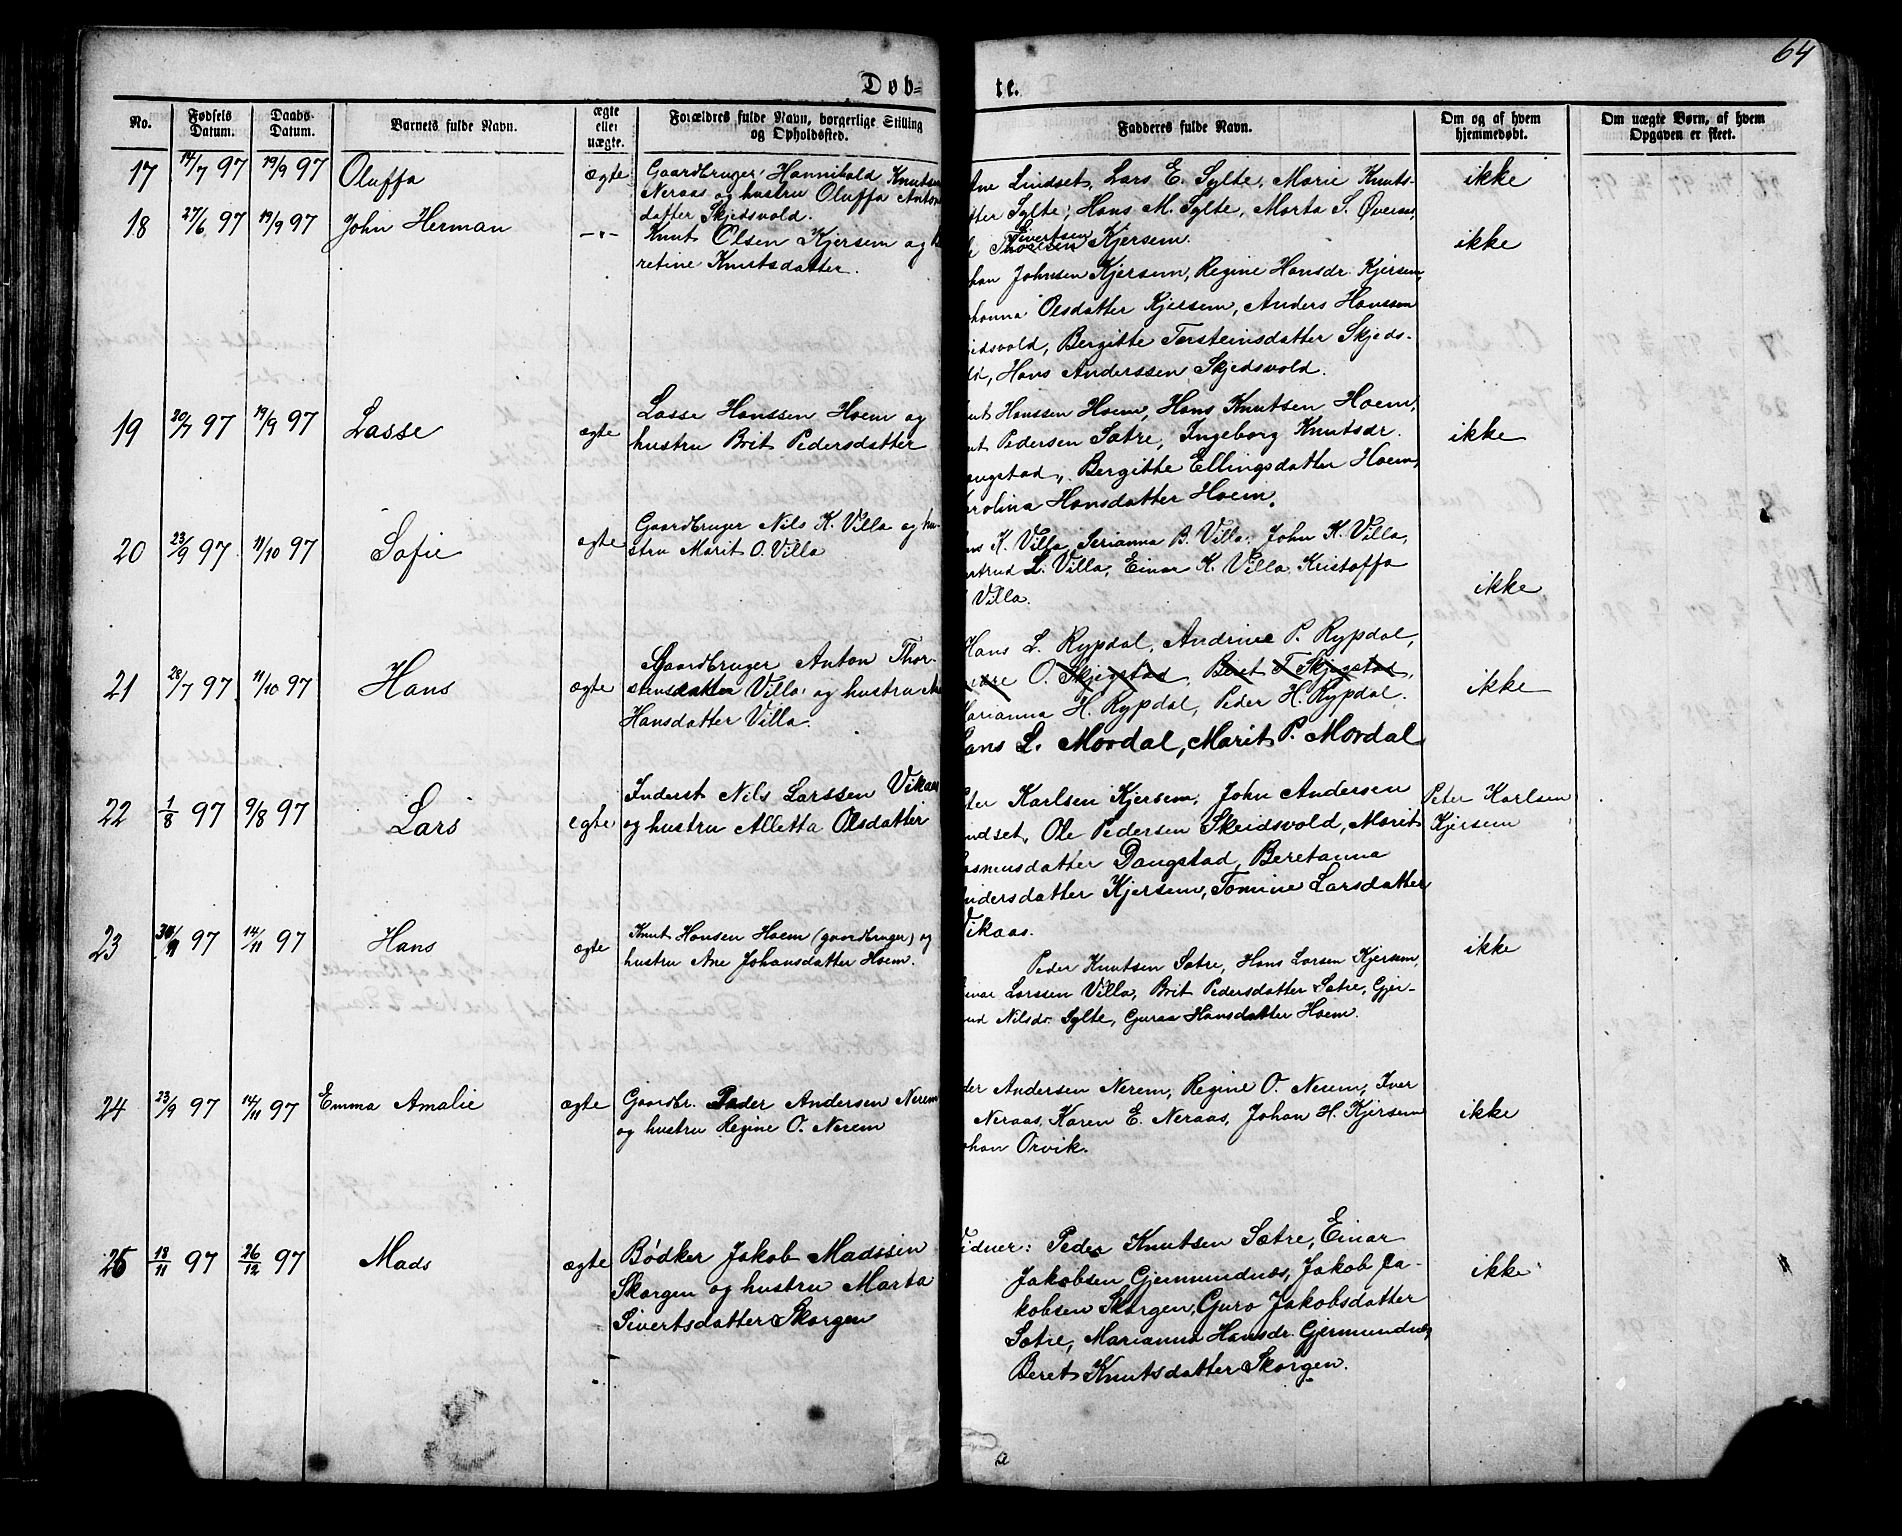 64
Døb= te.
No.
Fødsels Datum.
Daabs- Datum.
Barnets fulde Navn.
ægte eller uægte.
Forældres fulde Navn, borgerlige Stilling og Opholdssted.
Fadderes fulde Navn.
Om og af hvem hjemmedøbt.
Om uægte Børn, af hvem Opgaven er skeet.
17 14/7 97 19/9 97 Oluffa ægte
Gaardbruger Hannibald Knutsen
Neraas og hustru Oluffa Anton
datter Skjedsvold.
Lindset, Lars E. Sylte, Marie Knuts-
tter Sylte, Hans M. Sylte, Marta S. Øveraas,
ikke
18 27/6 97 19/9 97 John Herman –"–
Knut Olsen Kjersem og
retine Knutsdatter.
Sivertsen
Thorsen Kjersem.
han Johnsen Kjersem, Regine Hansdr. Kjersem,
ohanna Olsdatter Kjersem, Anders Hanssen
jedsvold, Bergitte Torsteinsdatter Skjeds-
ld, Hans Anderssen Skjedsvold.
ikke
19 20/7 97 19/9 97 Lasse ægte
Lasse Hanssen Hoem og
hustru Brit Pedersdatter
nut Hanssen Hoem, Hans Knutsen Hoem,
nut Pedersen Sætre, Ingeborg Knutsdr.
angstad, Bergitte Ellingsdatter Hoem,
arolina Hansdatter Hoem.
ikke
20 23/9 97 11/10 97 Sofie ægte
Gaardbruger Nils K. Villa og hu-
stru Marit O. Villa
ns K. Villa, Serianna B. Villa, John K. Villa,
ertrud L. Villa, Einar K. Villa, Kristoffa
Villa.
ikke
21 28/7 97 11/10 97 Hans ægte
Gaardbruger Anton Thor-
stensdatter Villa og hustru
Hansdatter Villa.
Hans L. Rypdal, Andrine P. Rypdal,
O. Skjegstad, Beret T. Skjegstad,
Marianna H. Rypdal, Peder H. Rypdal.
Hans L. Mordal, Marit P. Mordal
ikke
22 1/8 97 9/8 97 Lars ægte
Inderst Nils Larssen Vikaas
og hustru Alletta Olsdatter
ter Karlsen Kjersem, John Andersen
indset, Ole Pedersen Skeidsvold, Marit
asmusdatter Dangstad, Beretanna
ndersdatter Kjersem, Tomine Larsdatter
Vikaas.
Peter Karlsen
Kjersem
23 30/9 97 14/11 97 Hans ægte
Knut Hansen Hoem (gaardbruger) og
hustru Ane Johansdatter Hoem.
Peder Knutsen Sætre, Hans Larsen Kjersem,
inar Larssen Villa, Brit Pedersdatter Sætre, Gjer-
ud Nilsdr. Sylte, Guraa Hansdatter Hoem.
ikke
24 23/9 97 14/11 97 Emma Amalie ægte
Gaardbr. Peder Andersen Nerem
og hustru Regine O. Nerem
der Andersen Nerem, Regine O. Nerem, Iver
Neraas, Karen E. Neraas, Johan H. Kjersem
ohan Orvik.
ikke
25 18/11 97 26/12 97 Mads ægte
Bødker Jakob Madssen
Skorgen og hustru Marta
Sivertsdatter Skorgen
Vidner: Peder Knutsen Sætre, Einar
Jakobsen Gjermundnæs, Jakob Ja-
kobsen Skorgen, Guro Jakobsdatter
Sætre, Marianna Hansdr. Gjermundnæs,
Beret Knutsdatter Skorgen.
ikke